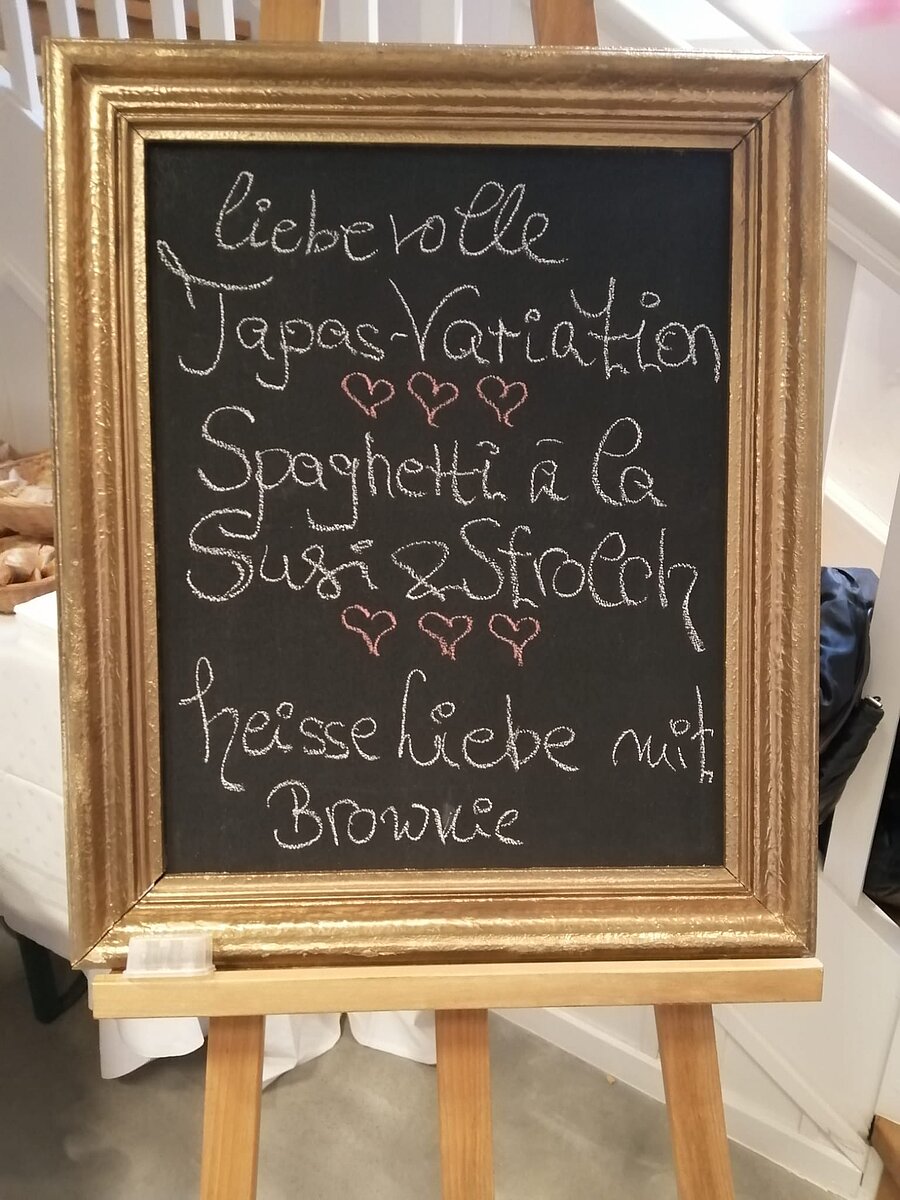 liebevolle
Tapas-Variation
Spaghetti à la
Susi & Strolch
heisse Liebe mit
Brownie